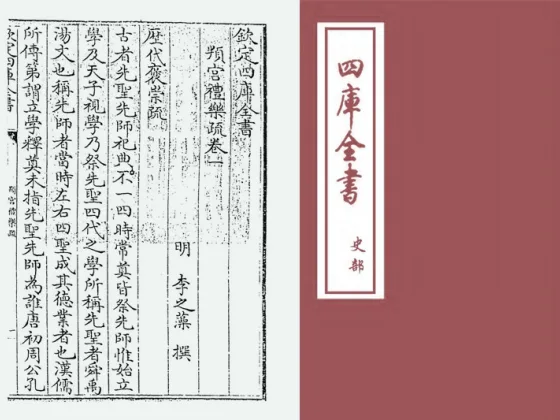 欽定四庫全書
頖宮禮樂疏卷一
明 李之藻 撰
歴代褒崇疏
古者先聖先師祀典不一四時常奠皆祭先師惟始立
學及天子視學乃祭先聖四代之學所稱先聖者舜禹
湯文也稱先師者當時左右四聖成其德業者也漢儒
所傳第謂立學釋奠未指先聖先師為誰唐初周公孔
欽定四庫全書
頖宮禮樂疏
一
四庫全書
史部